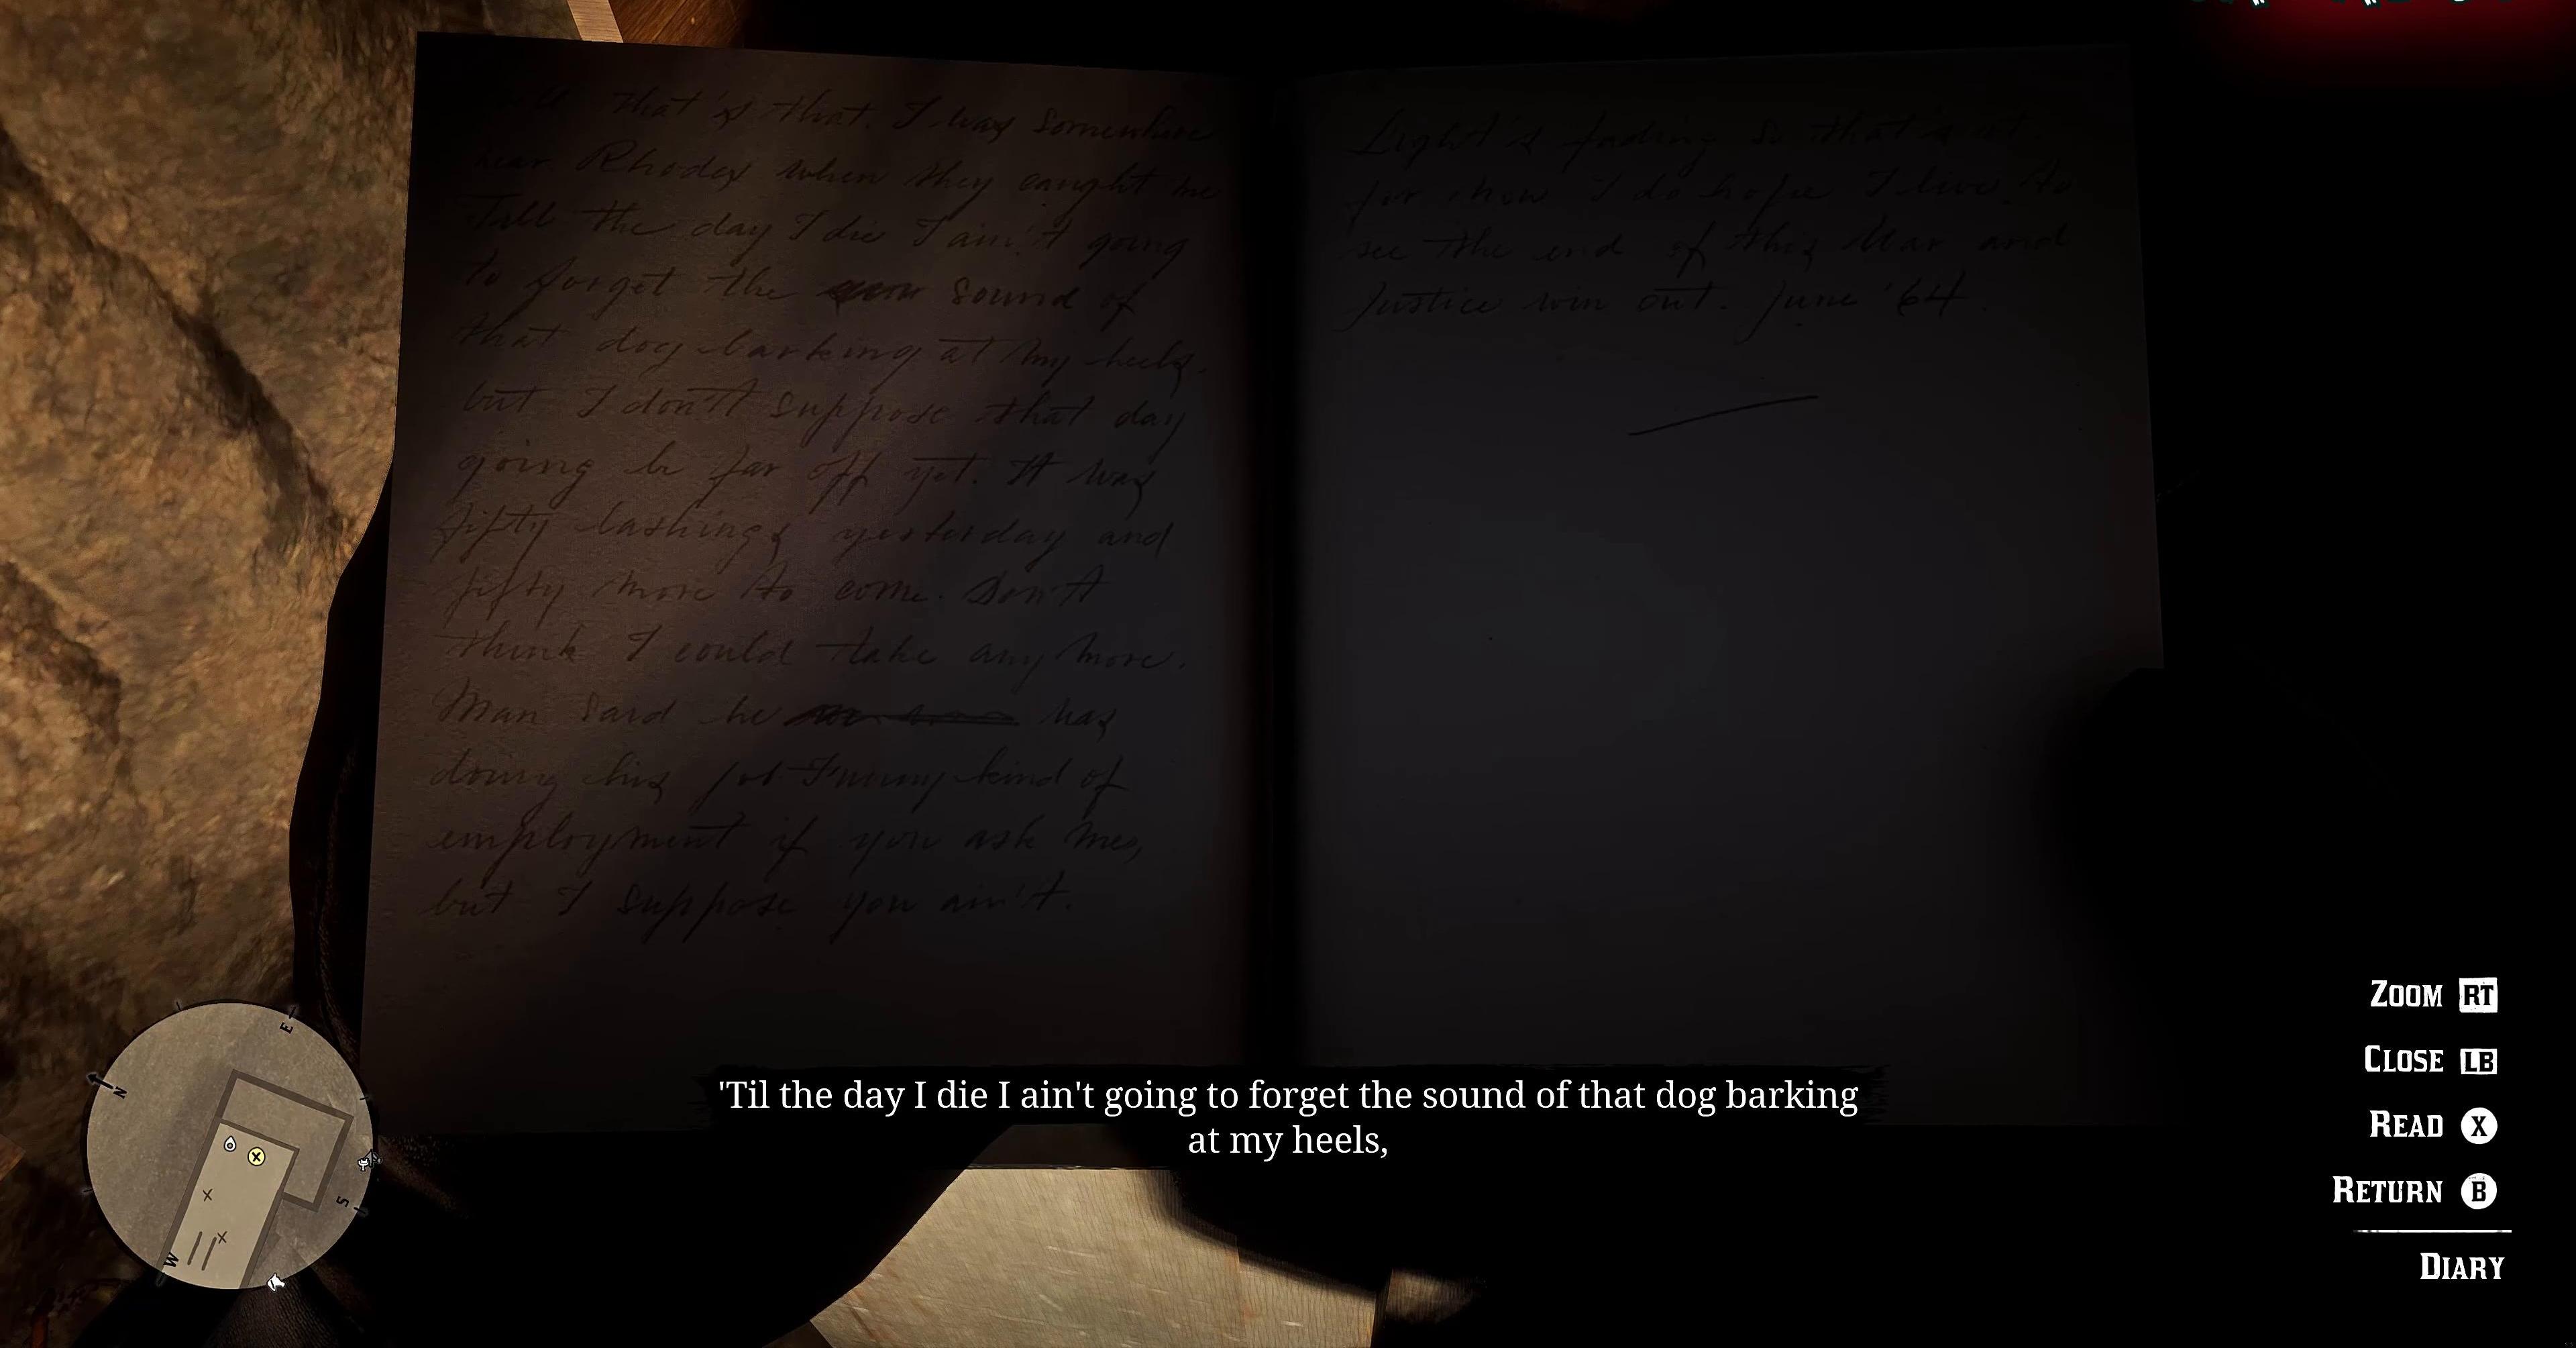 that's that. I was somewhere
near Rhodes when they caught me
Till the day I die I ain't going
to forget the sound of
that dog barking at my heels,
but I don't suppose that day
going be far off yet. It was
fifty lashings yesterday and
fifty more to come. Don't
think I could take any more.
Man said he was
doing his job. Funny kind of
employment if you ask me,
but I suppose you ain't.
Light is fading so that's
for now I do hope I live to
see the end of this War and
Justice win out. June '64.
'Til the day I die I ain't going to forget the sound of that dog barking
at my heels,
N
E
S
W
ZOOM RT
CLOSE LB
READ X
RETURN B
DIARY